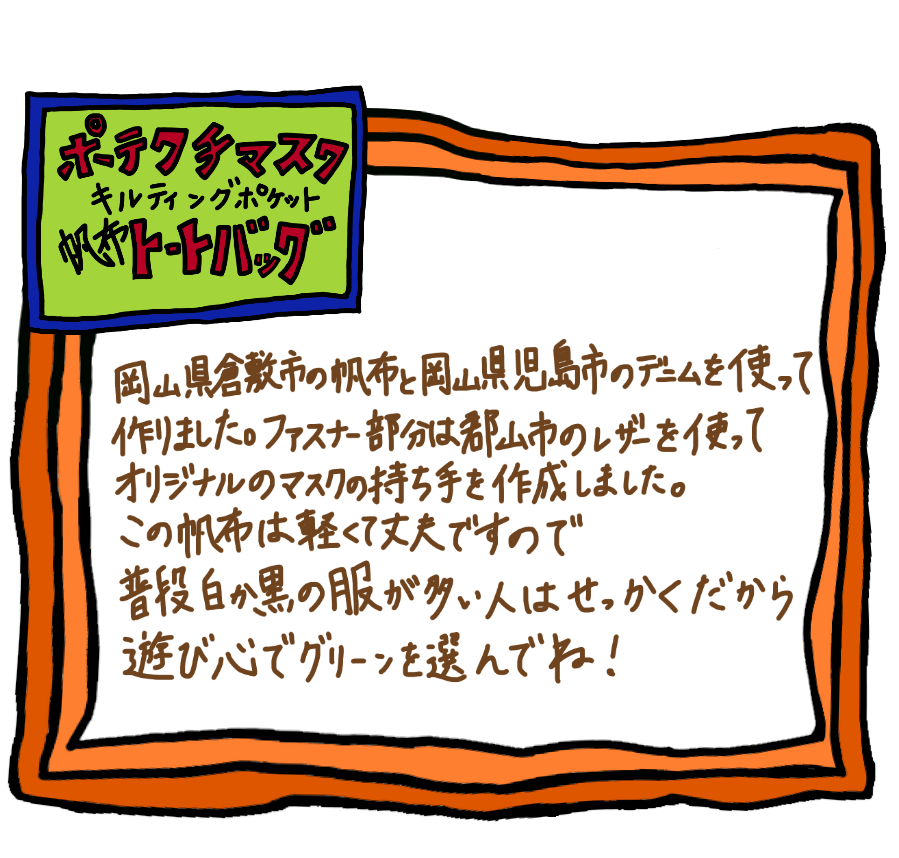 ポテクチマスク
キルティングポケット
帆布トートバッグ
岡山県倉敷市の帆布と岡山県児島市のデニムを使って
作りました。ファスナー部分は郡山市のレザーを使って
オリジナルのマスクの持ち手を作成しました。
この帆布は軽くて丈夫ですので
普段白か黒の服が多い人はせっかくだから
遊び心でグリーンを選んでね！